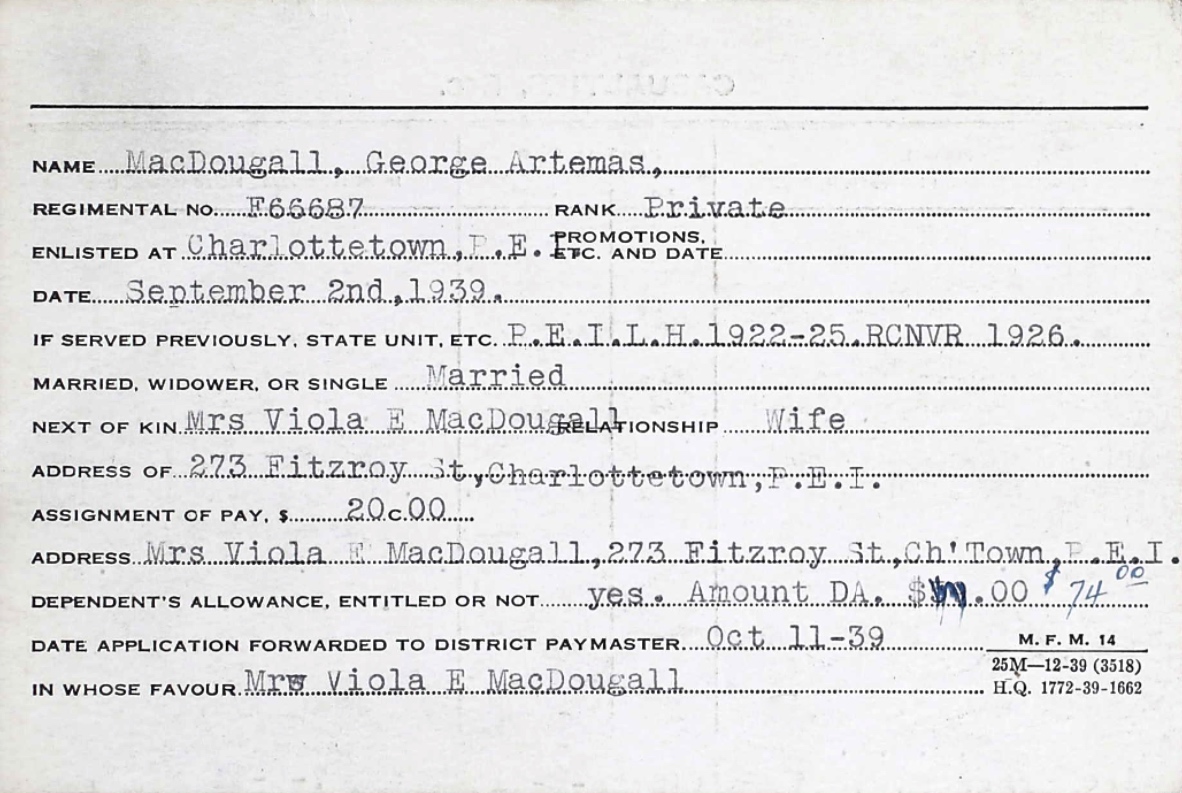 NAME MacDougall, George Artemas,
REGIMENTAL NO. F66687 RANK Private
ENLISTED AT Charlottetown,P.E.I. PROMOTIONS, ETC. AND DATE
DATE September 2nd,1939.
IF SERVED PREVIOUSLY, STATE UNIT, ETC. P.E.I.L.H.1922-25.RCNVR 1926.
MARRIED, WIDOWER, OR SINGLE Married
NEXT OF KIN Mrs Viola E MacDougall RELATIONSHIP Wife
ADDRESS OF 273 Fitzroy St,Charlottetown,P.E.I.
ASSIGNMENT OF PAY, $ 20c00
ADDRESS Mrs Viola E MacDougall,273 Fitzroy St.,Ch'Town,P.E.I.
DEPENDENT'S ALLOWANCE, ENTITLED OR NOT yes. Amount DA. $ .00 $74 00
DATE APPLICATION FORWARDED TO DISTRICT PAYMASTER Oct 11-39
M. F. M. 14
IN WHOSE FAVOUR Mrs Viola E MacDougall
25M—12-39 (3518)
H.Q. 1772-39-1662